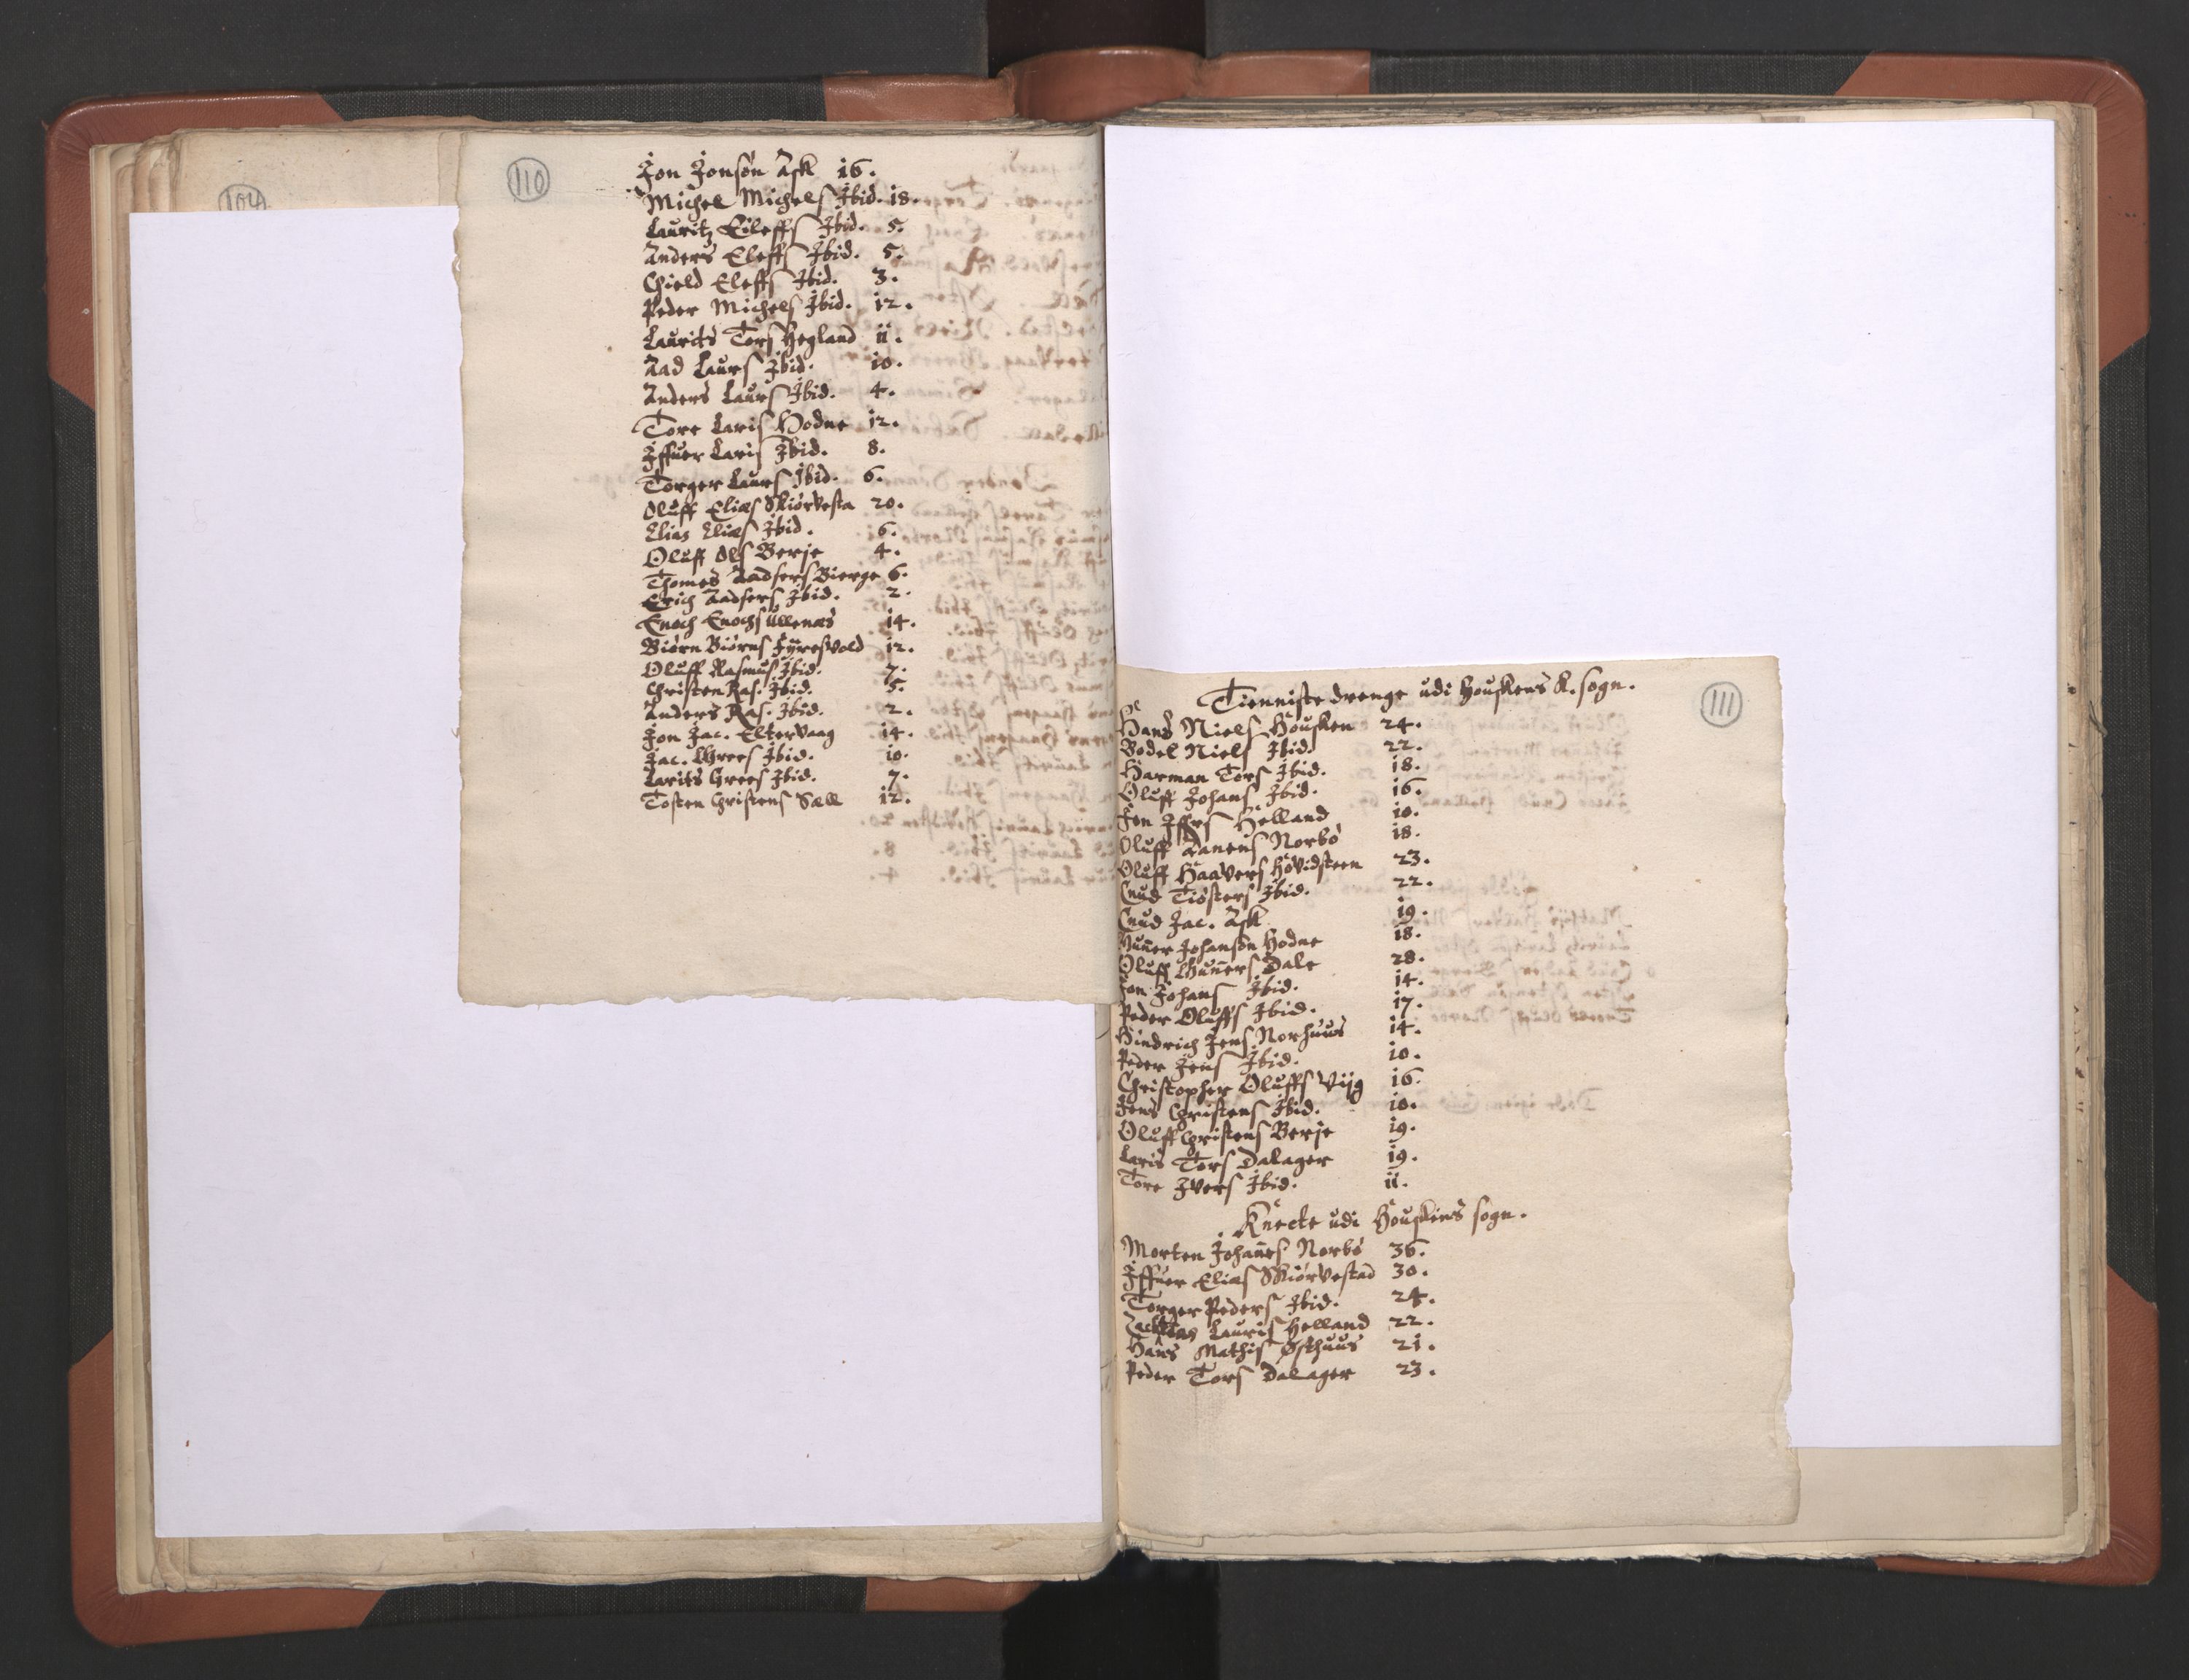 104
110
Jon Jonsøn Ask 16.
Michel Michels Ibid. 18.
Lauritz Eileffs Ibid. 5.
Anders Eleffs Ibid. 5.
Chield Eleffs Ibid. 3.
Peder Michels Ibid. 12.
Laurits Tors Hegland 11.
Aad Laurs Ibid. 10.
Anders Laurs Ibid. 4.
Tore Laris Hodne 12.
Iffuer Laris Ibid. 8.
Torger Laurs Ibid. 6.
Oluff Elias Skiørvesta 20.
Elias Elias Ibid. 6.
Oluff Ols Berje 4.
Thomes Aadsers Bierge 6.
Erich Aadsers Ibid. 2.
Enoch Enochs Ullenæs 14.
Biørn Biørns Fyresvold 12.
Oluff Rasmus Ibid. 7.
Christen Ras. Ibid. 5.
Anders Ras. Ibid. 2.
Jon Jac. Eltervaag 14.
Jac. Ibid. 10.
Larits Ibid. 7.
Tosten Christens Sæll 12.
111
Tienniste drenge udi Houskens K. sogn.
Hans Niels Housken 24.
Bodel Niels Ibid. 22.
Harman Tors Ibid. 18.
Oluff Johans Ibid. 16.
Jon Iffers Helland 10.
Oluff Norbø 18.
Oluff Haavers Høvidsteen 23.
Cnud Tiøsters Ibid. 22.
Cnud Jac. Ask 19.
Johansøn Hodne 18.
Oluff Dale 28.
Jon Johans Ibid. 14.
Peder Oluffs Ibid. 17.
Hindrich Jens Norhuus 14.
Peder Jens Ibid. 10.
Christopher Oluffs Viig 16.
Jens Christens Ibid. 10.
Oluff Christens Berje 19.
Laris Tors Dalager 19.
Tore Ivers Ibid. 11.
Knecte udi Houskens sogn.
Morten Johanes Norbø 36.
Iffuer Elias Skiørvestad 30.
Torger Peders Ibid. 24.
Lauris Helland 22.
Hans Mathis Østhuus 21.
Peder Tors Dalager 23.